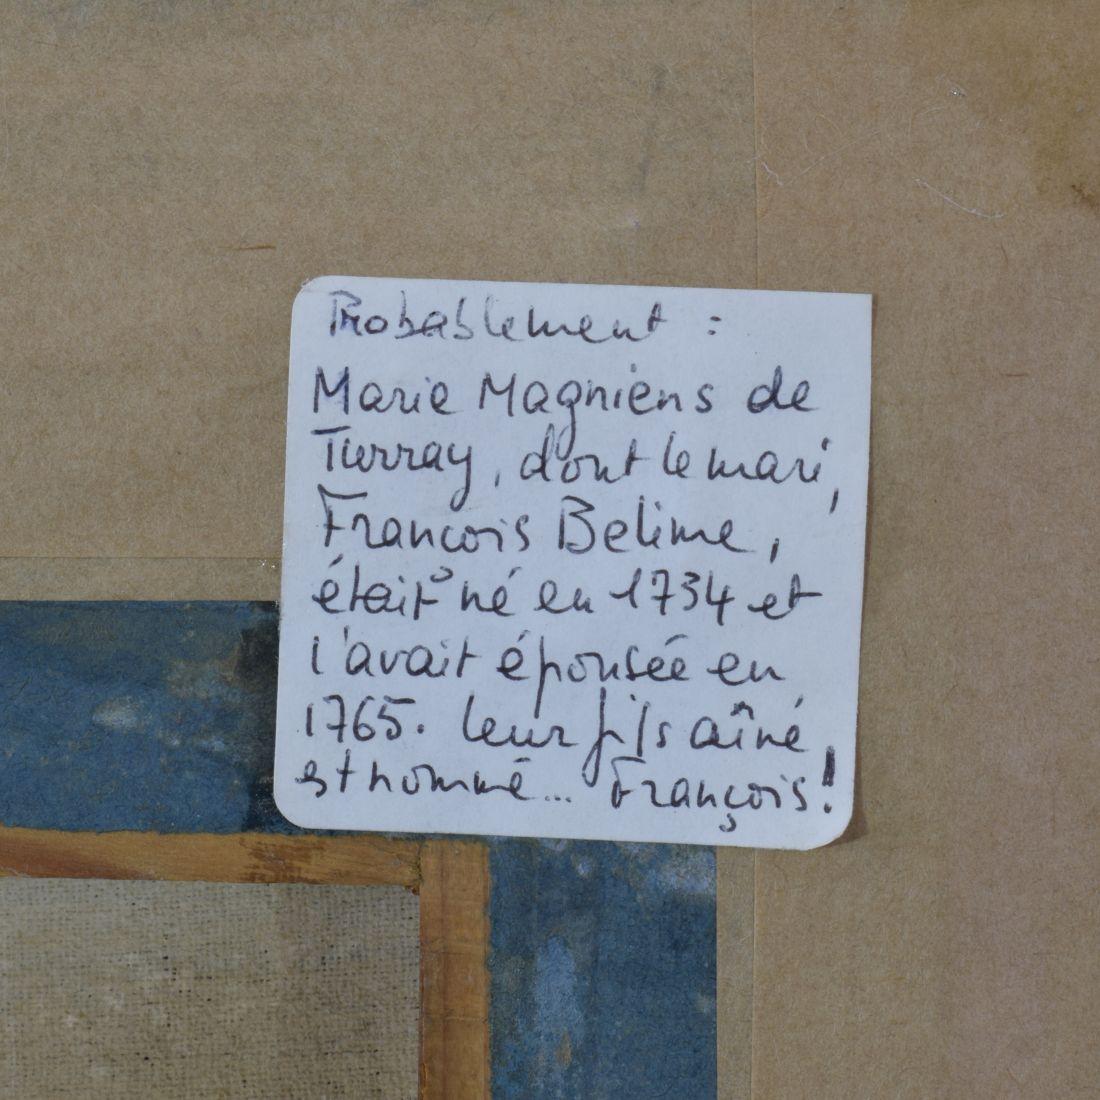 Probablement :
Marie Magniens de
Turray, dont le mari,
François Belime,
était né en 1734 et
l'avait épousée en
1765. leur fils aîné
est nommé... François!